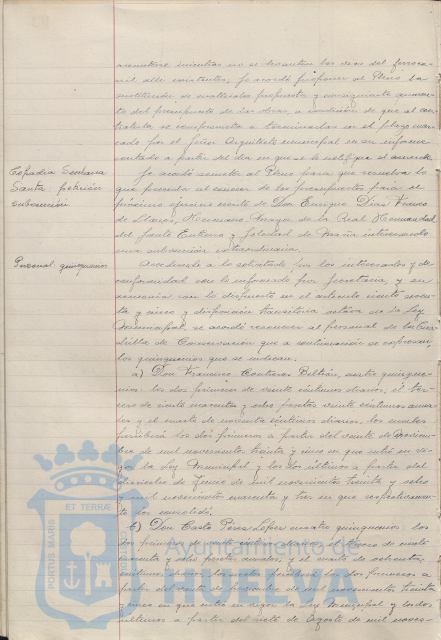 mientras no se levanten las vías del ferroca-
rril allí existentes, se acordó proponer al Pleno la
sustitución de materiales propuesta y consiguiente aumen-
to del presupuesto de las obras, a condición de que el con-
tratista se comprometa a terminarlas en el plazo mar-
cado por el Señor Arquitecto municipal en su informe
contado a partir del día en que se le notifique el acuerdo.
Cofradía Semana
Santa petición
subvención
Se acordó someter al Pleno para que resuelva lo
que proceda al conocer de los presupuestos para el
próximo ejercicio escrito de Don Enrique Díaz Franco
de Llanos, Hermano Mayor de la Real Hermandad
del Santo Entierro y Soledad de María interesando
una subvención extraordinaria.
Personal quinquenios
Accediendo a lo solicitado por los interesados y de
conformidad con lo informado por Secretaría, y en
armonía con lo dispuesto en el artículo ciento
y cinco y disposición transitoria octava de la Ley
Municipal se acordó reconocer al personal de la Cua-
drilla de Conservación que a continuación se expresan,
los quinquenios que se indican.
a) Don Francisco Contreras Beltrán, cuatro quinque-
nios: los dos primeros de veinte céntimos diarios, el ter-
cero de ciento sesenta y ocho pesetas veinte céntimos anua-
les y el cuarto de noventa céntimos diarios, los cuales
percibirá los dos primeros a partir del veinte de Noviem-
bre de mil novecientos treinta y cinco en que entró en vi-
gor la Ley Municipal y los dos últimos a partir del
dieciocho de Junio de mil novecientos treinta y ocho
y mil novecientos cuarenta y tres en que respectivamen-
te los cumplió.
b) Don Casto Pérez López cuatro quinquenios: los
dos primeros de veinte céntimos diarios, el tercero de ciento
y ocho pesetas anuales, y el cuarto de
céntimos diarios, los cuales percibirá los dos primeros a
partir del veinte de Noviembre de mil novecientos treinta
y cinco en que entró en vigor la Ley Municipal y los dos
últimos a partir del siete de Agosto de mil noves-
PORTUS MARIS
ET TERRAE
Ayuntamiento de
HUELVA